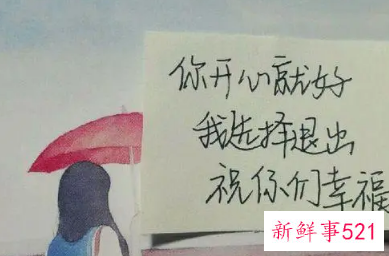 你开心就好
我选择退出
祝你们幸福
新鲜事521